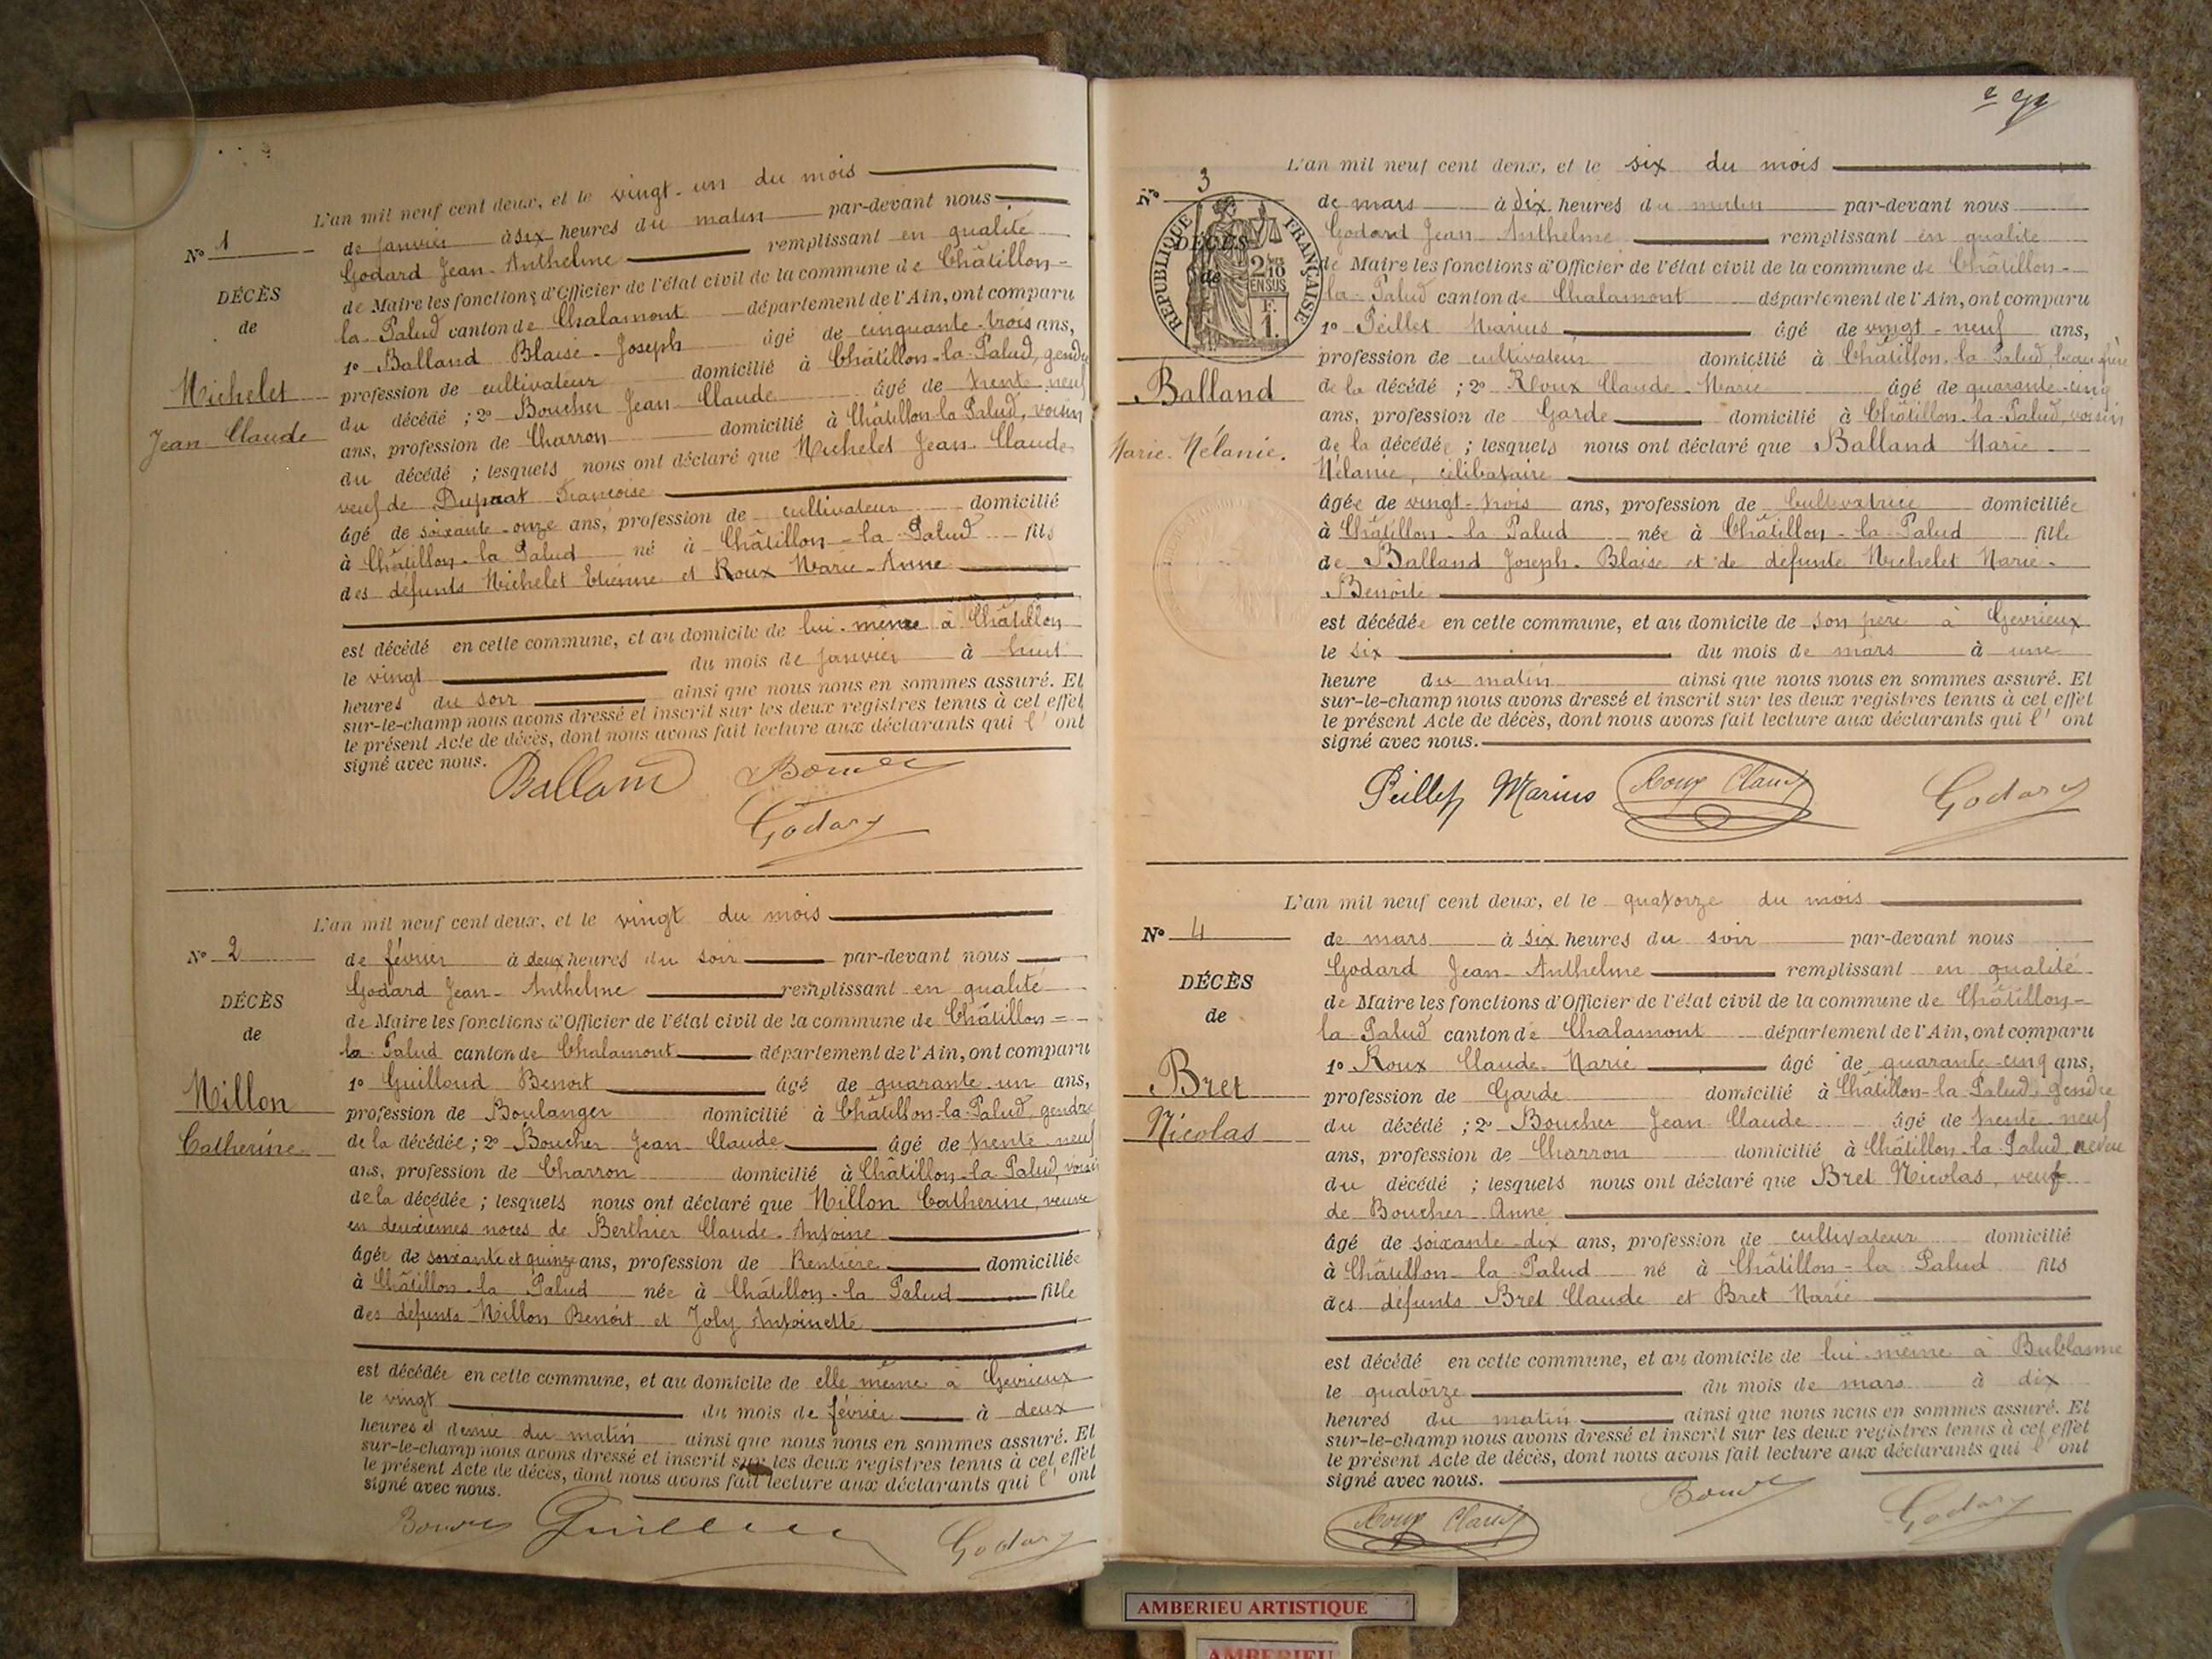 L'an mil neuf cent deux, et le vingt-un du mois
N° 1
de janvier à six heures du matin par-devant nous
Godard Jean-Anthelme remplissant en qualité
DÉCÈS
de Maire les fonctions d'Officier de l'état civil de la commune de Châtillon-
de
la-Palud canton de Chalamont département de l'Ain, ont comparu
1° Balland Blaise-Joseph âgé de cinquante-trois ans,
Michelet
profession de cultivateur domicilié à Châtillon-la-Palud, gendre
Jean Claude
du décédé ; 2° Boucher Jean Claude âgé de trente-neuf
ans, profession de Charron domicilié à Châtillon-la Palud, voisin
du décédé ; lesquels nous ont déclaré que Michelet Jean-Claude
veuf de Françoise
âgé de soixante-onze ans, profession de cultivateur domicilié
à Châtillon-la Palud né à Châtillon-la-Palud fils
des défunts Michelet Etienne et Roux Marie-Anne
est décédé en cette commune, et au domicile de lui-même à Châtillon
le vingt du mois de janvier à huit
heures du soir ainsi que nous nous en sommes assuré. Et
sur-le-champ nous avons dressé et inscrit sur les deux registres tenus à cet effet
le présent Acte de décès, dont nous avons fait lecture aux déclarants qui l' ont
signé avec nous.
Balland
Godard
L'an mil neuf cent deux, et le vingt du mois
N° 2
de février à deux heures du soir par-devant nous
Godard Jean-Anthelme remplissant en qualité
DÉCÈS
de Maire les fonctions d'Officier de l'état civil de la commune de Châtillon-
de
la-Palud canton de Chalamont département de l'Ain, ont comparu
1° Guilloud Benoit âgé de quarante-un ans,
Millon
profession de Boulanger domicilié à Châtillon-la-Palud, gendre
Catherine
de la décédée ; 2° Boucher Jean Claude âgé de trente-neuf
ans, profession de Charron domicilié à Châtillon-la Palud, voisin
de la décédée ; lesquels nous ont déclaré que Millon Catherine, veuve
en deuxièmes noces de Berthier Claude-Antoine
âgée de soixante et quinze ans, profession de Rentière domiciliée
à Châtillon-la Palud née à Châtillon-la Palud fille
des défunts Millon Benoit et Joly Antoinette
est décédée en cette commune, et au domicile de elle même à Gévrieux
le vingt du mois de février à deux
heures et demie du matin ainsi que nous nous en sommes assuré. Et
sur-le-champ nous avons dressé et inscrit sur les deux registres tenus à cet effet
le présent Acte de décès, dont nous avons fait lecture aux déclarants qui l' ont
signé avec nous.
Godard
L'an mil neuf cent deux, et le six du mois
N° 3
de mars à dix heures du matin par-devant nous
Godard Jean-Anthelme remplissant en qualité
DÉCÈS
de
RÉPUBLIQUE FRANÇAISE
2/10 EN SUS
F. 1.
de Maire les fonctions d'Officier de l'état civil de la commune de Châtillon-
la-Palud canton de Chalamont département de l'Ain, ont comparu
1° Peillet Marius âgé de vingt-neuf ans,
profession de cultivateur domicilié à Châtillon-la Palud, beau frère
Balland
de la décédé ; 2° Roux Claude-Marie âgé de quarante-cinq
ans, profession de Garde domicilié à Châtillon-la-Palud, voisin
Marie-Mélanie.
de la décédée ; lesquels nous ont déclaré que Balland Marie-
Mélanie, célibataire
âgée de vingt-trois ans, profession de Cultivatrice domiciliée
à Châtillon-la Palud née à Châtillon-la-Palud fille
de Balland Joseph-Blaise et de défunte Michelet Marie-
Benoite
est décédée en cette commune, et au domicile de son père à Gévrieux
le six du mois de mars à une
heure du matin ainsi que nous nous en sommes assuré. Et
sur-le-champ nous avons dressé et inscrit sur les deux registres tenus à cet effet
le présent Acte de décès, dont nous avons fait lecture aux déclarants qui l' ont
signé avec nous.
Peillet Marius Roux Claude Godard
L'an mil neuf cent deux, et le quatorze du mois
N° 4
de mars à six heures du soir par-devant nous
Godard Jean-Anthelme remplissant en qualité
DÉCÈS
de Maire les fonctions d'Officier de l'état civil de la commune de Châtillon-
de
la Palud canton de Chalamont département de l'Ain, ont comparu
1° Roux Claude-Marie âgé de quarante-cinq ans,
Bret
profession de Garde domicilié à Châtillon-la Palud, gendre
Nicolas
du décédé ; 2° Boucher Jean Claude âgé de trente-neuf
ans, profession de Charron domicilié à Châtillon-la-Palud neveu
du décédé ; lesquels nous ont déclaré que Bret Nicolas, veuf
de Boucher Anne
âgé de soixante-dix ans, profession de cultivateur domicilié
à Châtillon-la Palud né à Châtillon-la Palud fils
des défunts Bret Claude et Bret Marie
est décédé en cette commune, et au domicile de lui-même à Bublanne
le quatorze du mois de mars à dix
heures du matin ainsi que nous nous en sommes assuré. Et
sur-le-champ nous avons dressé et inscrit sur les deux registres tenus à cet effet
le présent Acte de décès, dont nous avons fait lecture aux déclarants qui l' ont
signé avec nous.
Roux Claude Godard
AMBERIEU ARTISTIQUE
AMBERIEU